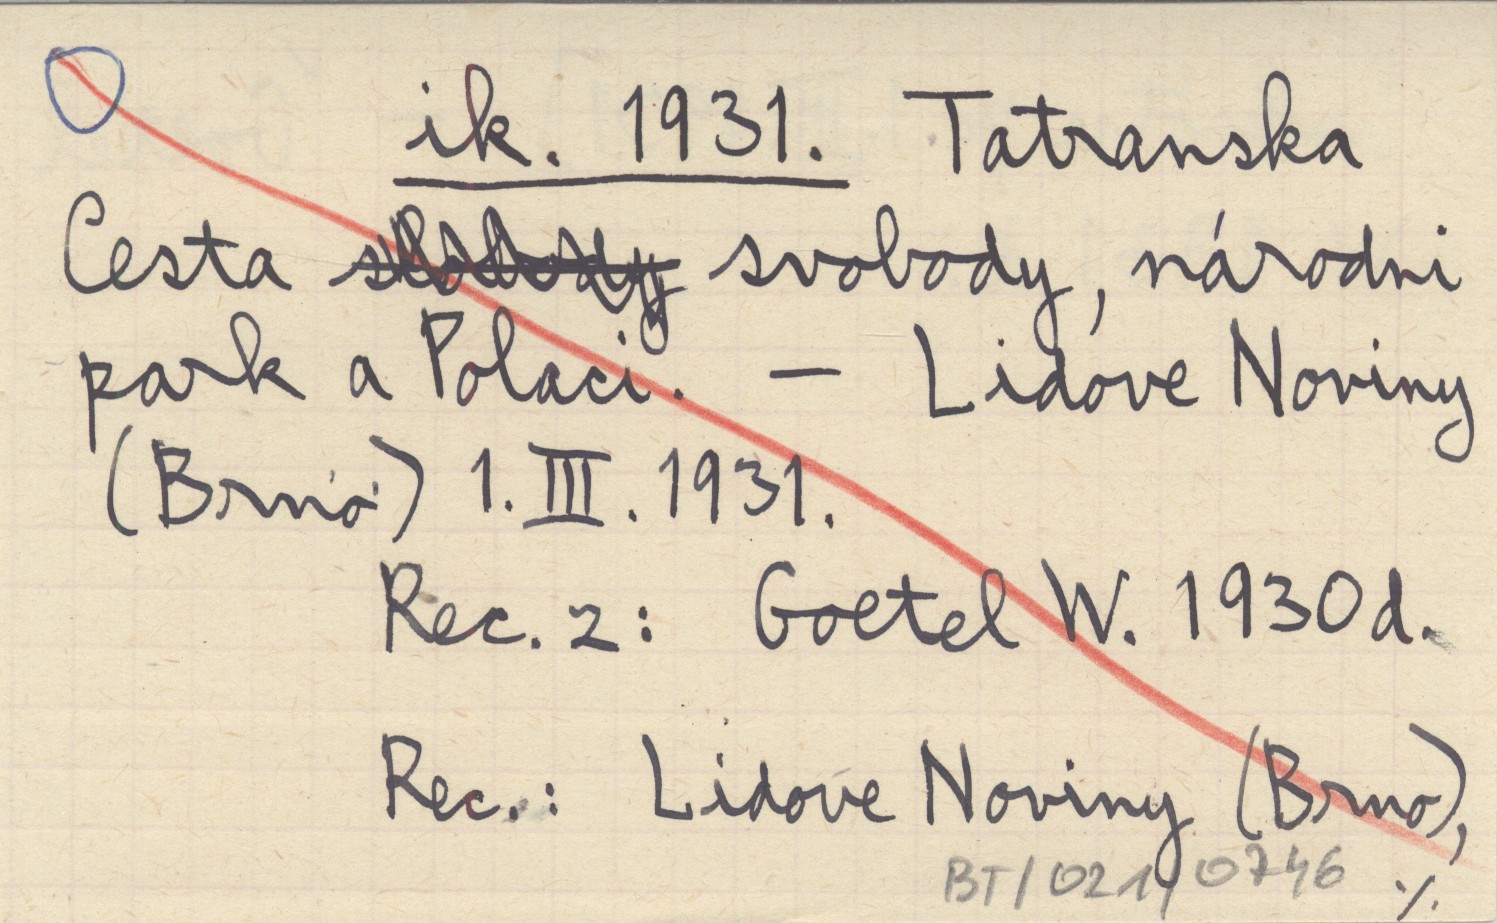 ik. 1931. Tatranska
Cesta svobody, národni
park a Polaci. — Lidove Noviny
(Brno) 1. III. 1931.
Rec. z: Goetel W. 1930d.
Rec.: Lidove Noviny (Brno),
BT/021/0746 ./.